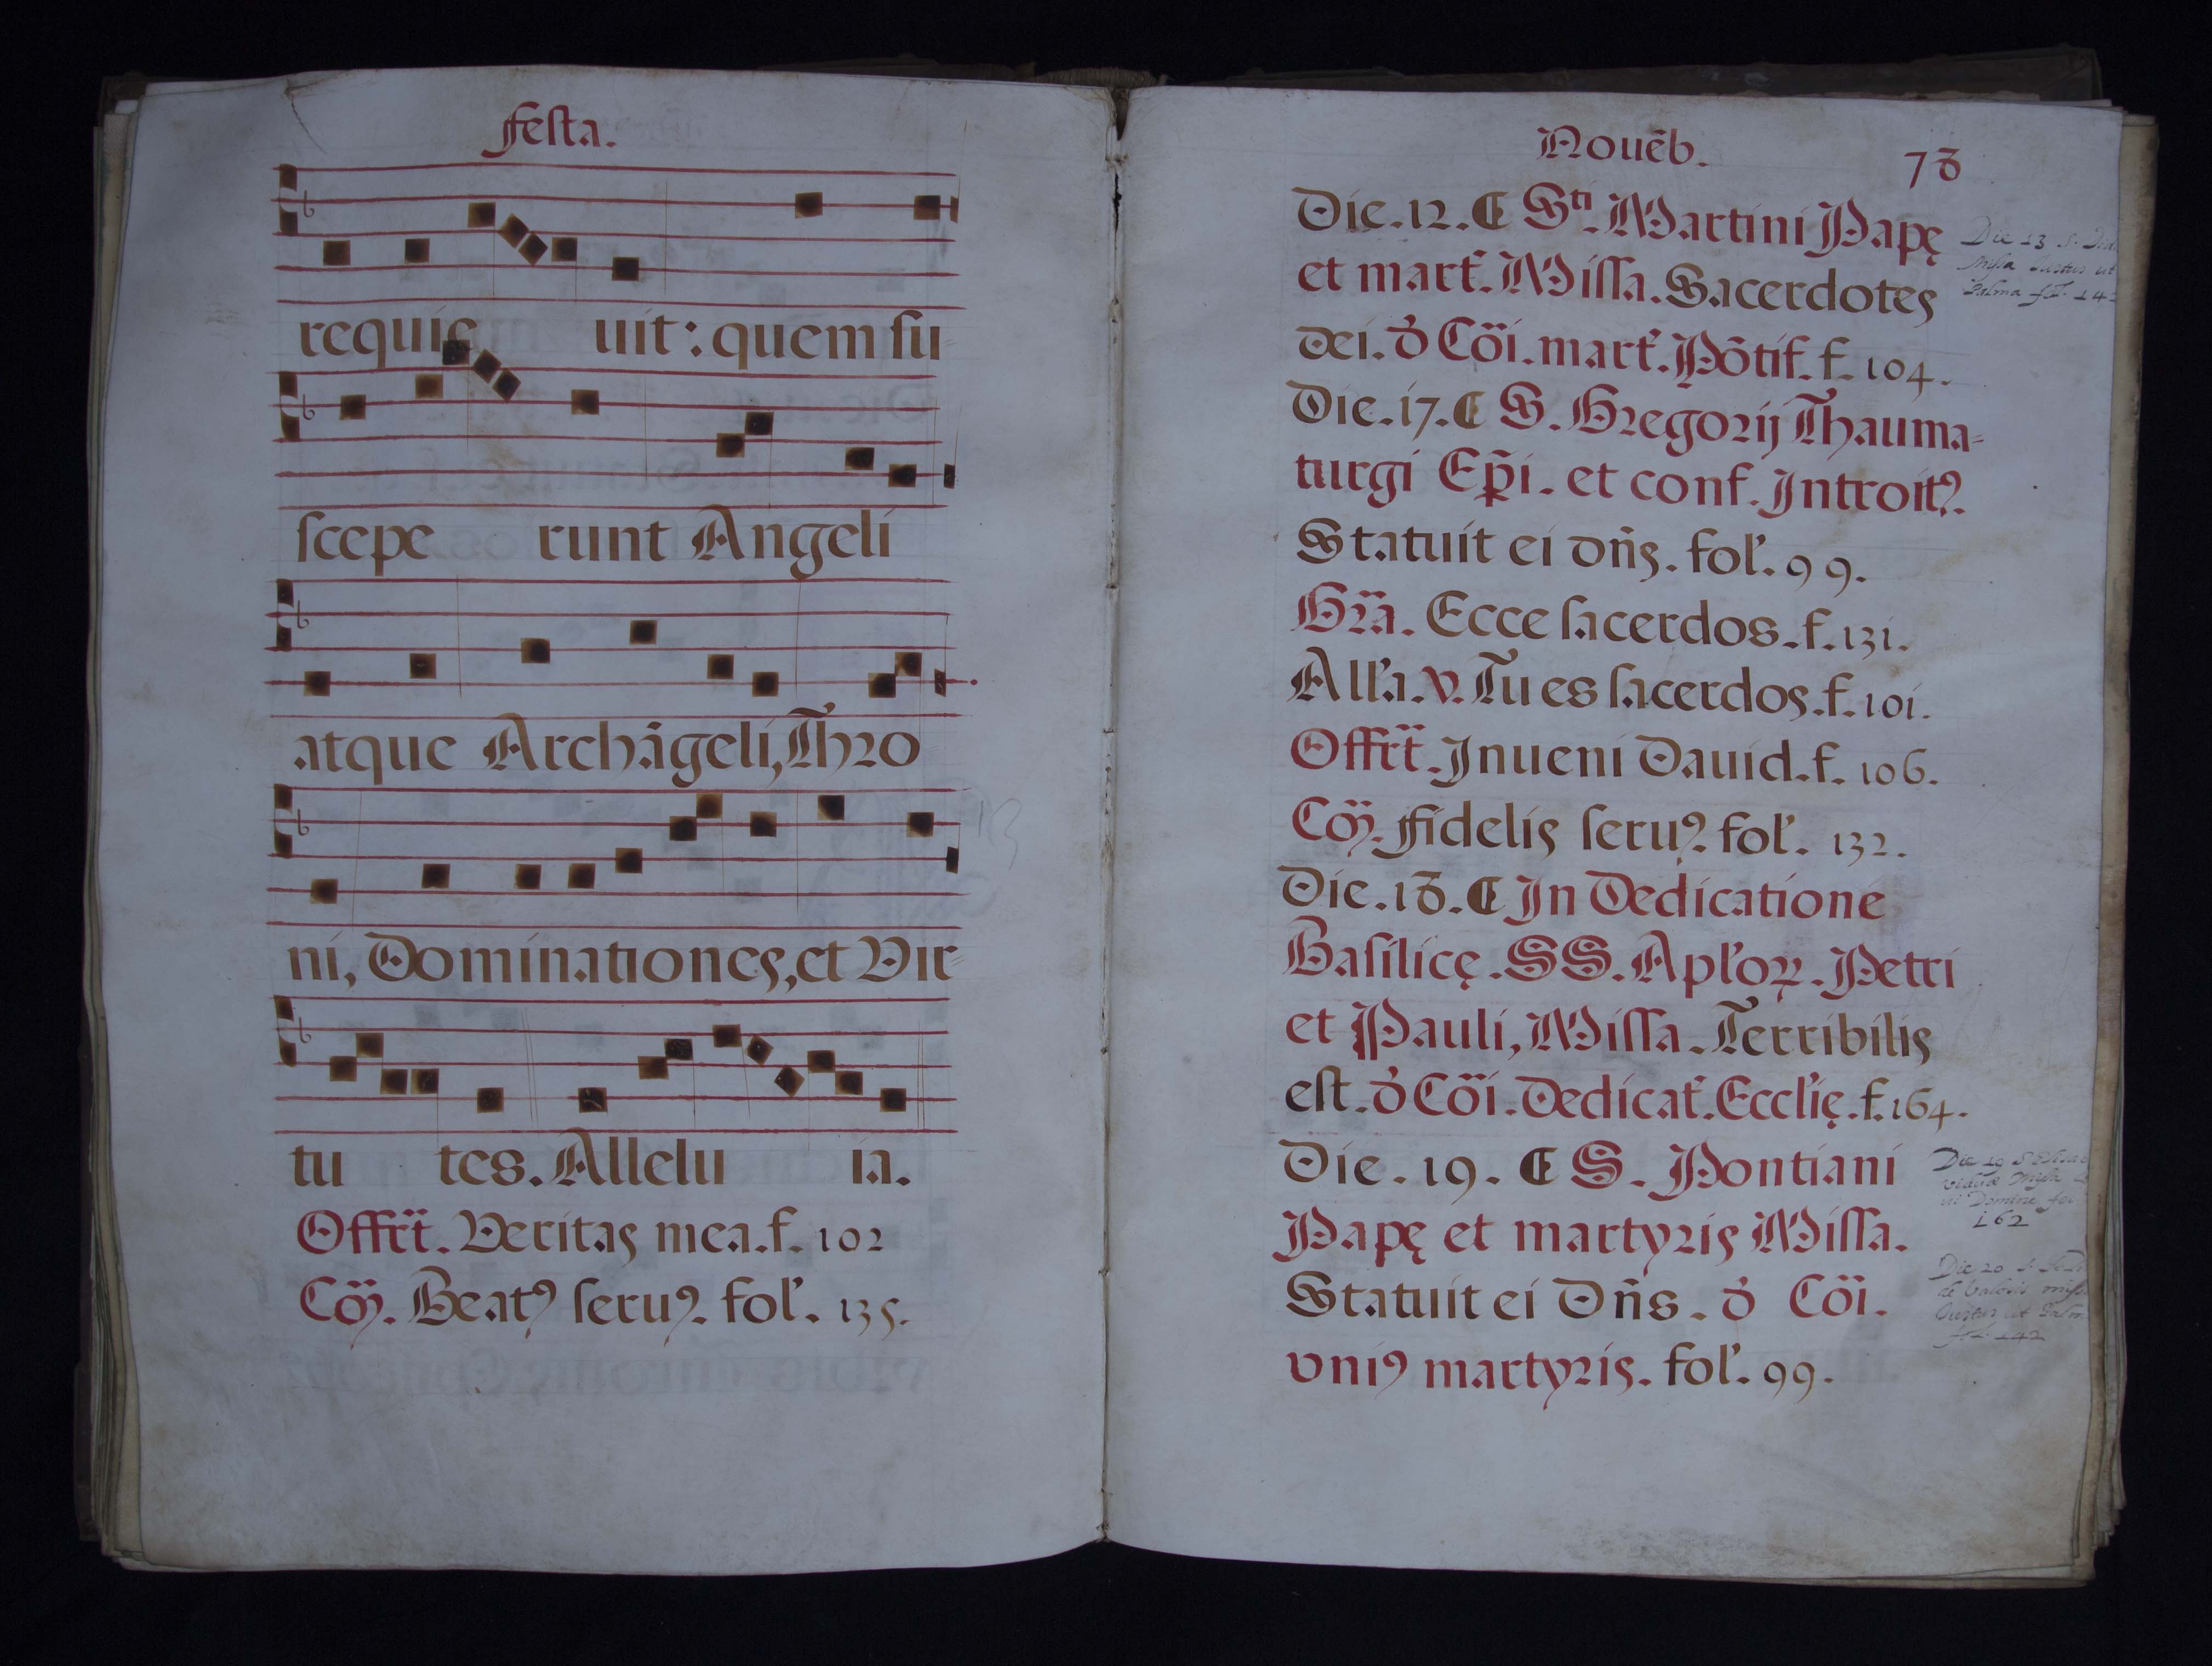 festa.
requie uit: quem su
scepe runt Angeli
atque Archãgeli, Thro
ni, Dominationes, et Vir-
tu tes. Allelu ia.
Offrt̃. Veritas mea. f. 102
Cõ. Beatꝰ seruꝰ. fol'. 135.
Nouẽb. 78
Die. 12. ¶ Sti. Martini Papę
et mart'. Missa. Sacerdotes
dei. d' Cõi. mart'. Põtif. f. 104.
Die. 17. ¶ S. Gregorij Thauma-
turgi Ep̃i. et conf. Introitꝰ.
Statuit ei dñs. fol'. 99.
Gr̃a. Ecce sacerdos. f. 131.
All'a. v. Tu es sacerdos. f. 101.
Offrt̃. Inueni Dauid. f. 106.
Cõ. fidelis seruꝰ. fol'. 132.
Die. 18. ¶ In Dedicatione
Basilicę. SS. Apl'oꝝ. Petri
et Pauli, Missa. Terribilis
est. d' Cõi. Dedicat'. Eccl'ię. f. 164.
Die. 19. ¶ S. Pontiani
Papę et martyris Missa.
Statuit ei Dñs. d' Cõi.
vniꝰ martyris. fol'. 99.
Die 13 S.
Missa Iustus ut
Palma
Die 19 S
viduæ Missa
Domine
162
Die 20 S.
de Valois miss
Iustus ut Palm
142